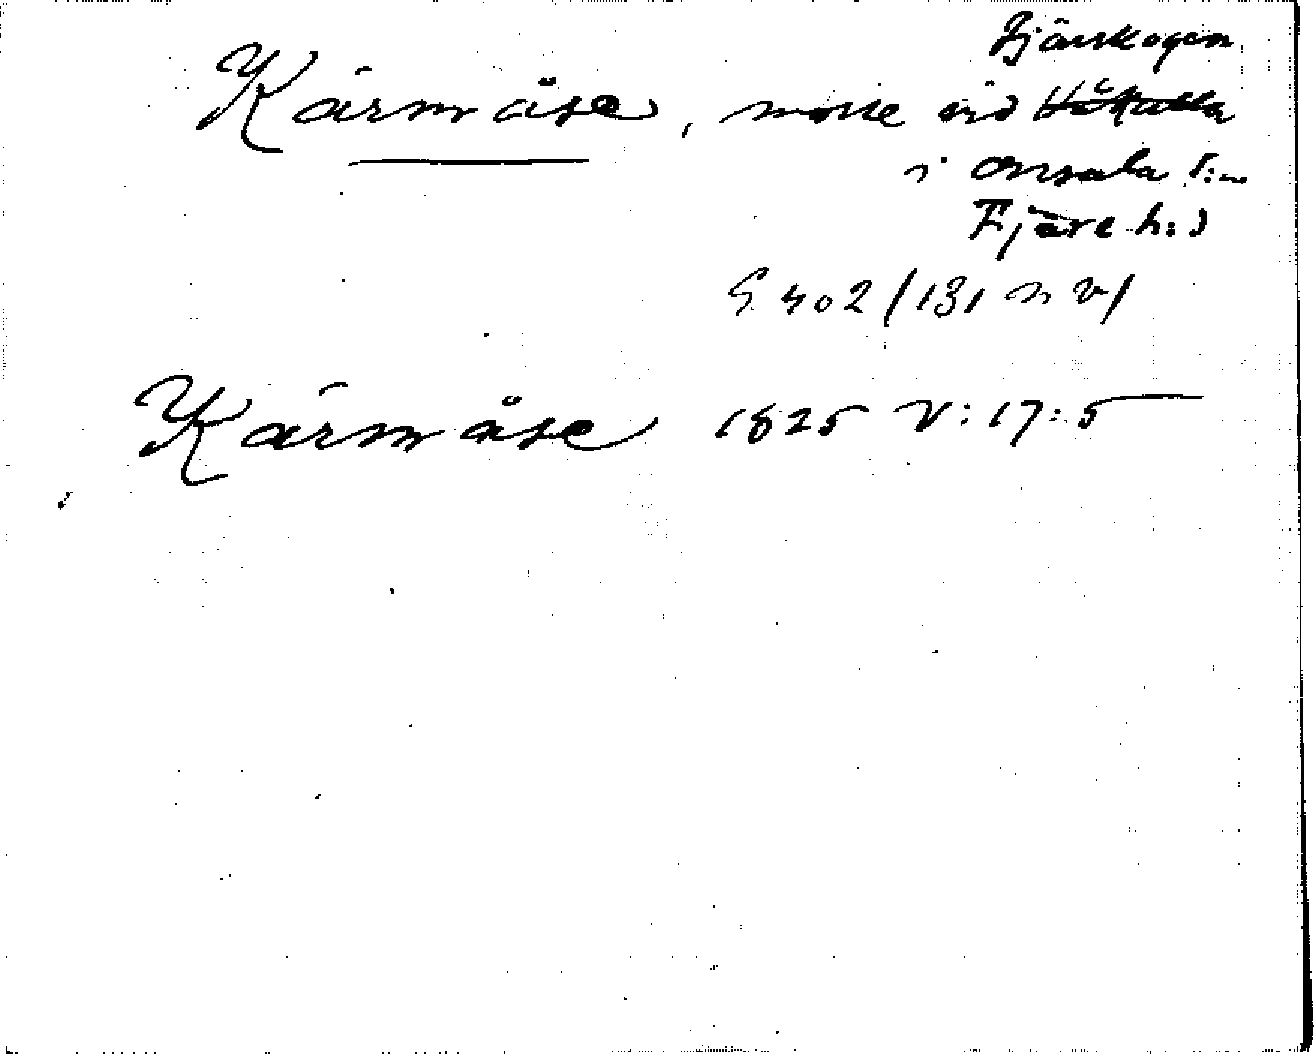 Bjärskogen
Kärmåse, mosse vid Håkulla
i Onsala s:n
Fjäre h:d
G 402 /131 n v/
Kärmåse 1825 V:17:5